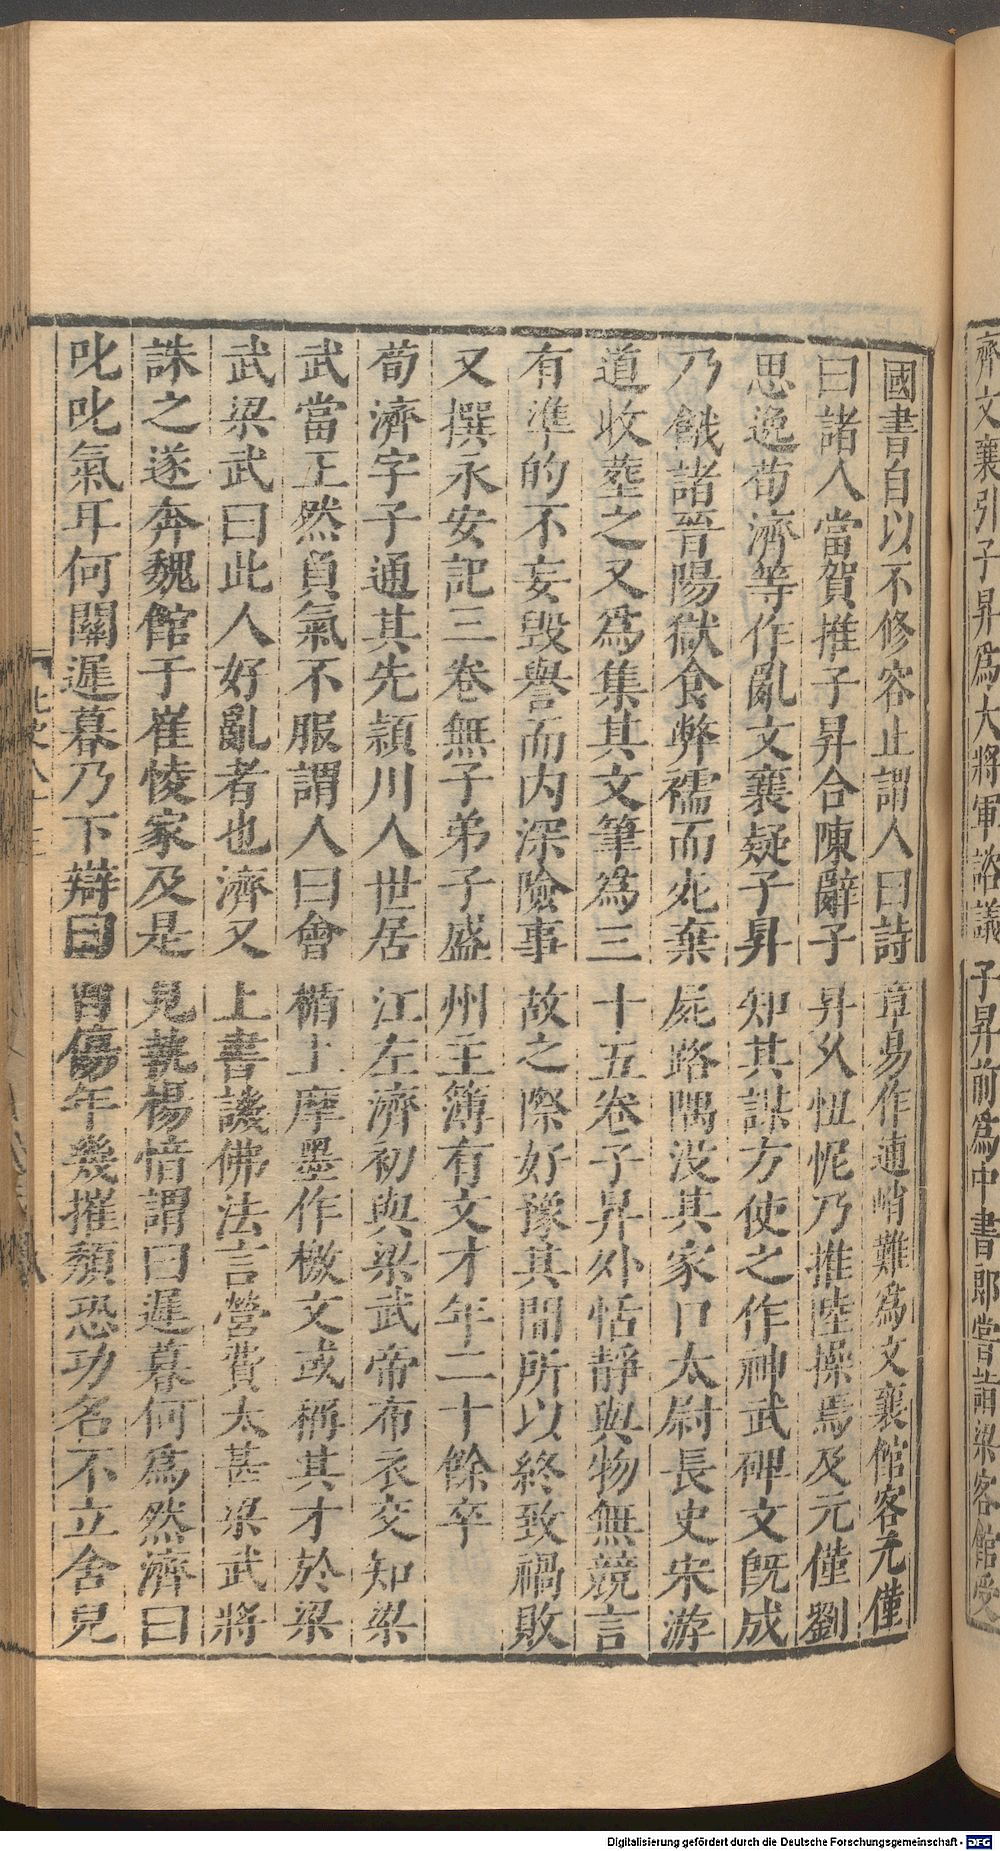 齊文襄引子昇爲大將軍諮議子昇前爲中書郎嘗詣梁客館受
國書自以不修容止謂人曰詩章易作逋峭難爲文襄館客元僅
曰諸人當賀推子昇合陳辭子昇久忸怩乃推陸操焉及元僅劉
思逸荀濟等作亂文襄疑子昇知其謀方使之作神武碑文既成
乃餓諸晉陽獄食弊襦而死棄屍路隅没其家口太尉長史宋游
道收葬之又爲集其文筆爲三十五卷子昇外恬靜與物無競言
有準的不妄毀譽而内深險事故之際好豫其間所以終致禍敗
又撰永安記三卷無子弟子盛州主簿有文才年二十餘卒
荀濟字子通其先潁川人世居江左濟初與梁武帝布衣交知梁
武當王然負氣不服謂人曰會楯上摩墨作檄文或稱其才於梁
武梁武曰此人好亂者也濟又上書譏佛法言營費太甚梁武將
誅之遂奔魏館于崔㥄家及是見執楊愔謂曰遲暮何爲然濟曰
叱叱氣耳何關遲暮乃下辯曰自傷年幾摧頹恐功名不立舍兒
Digitalisierung gefördert durch die Deutsche Forschungsgemeinschaft - DFG